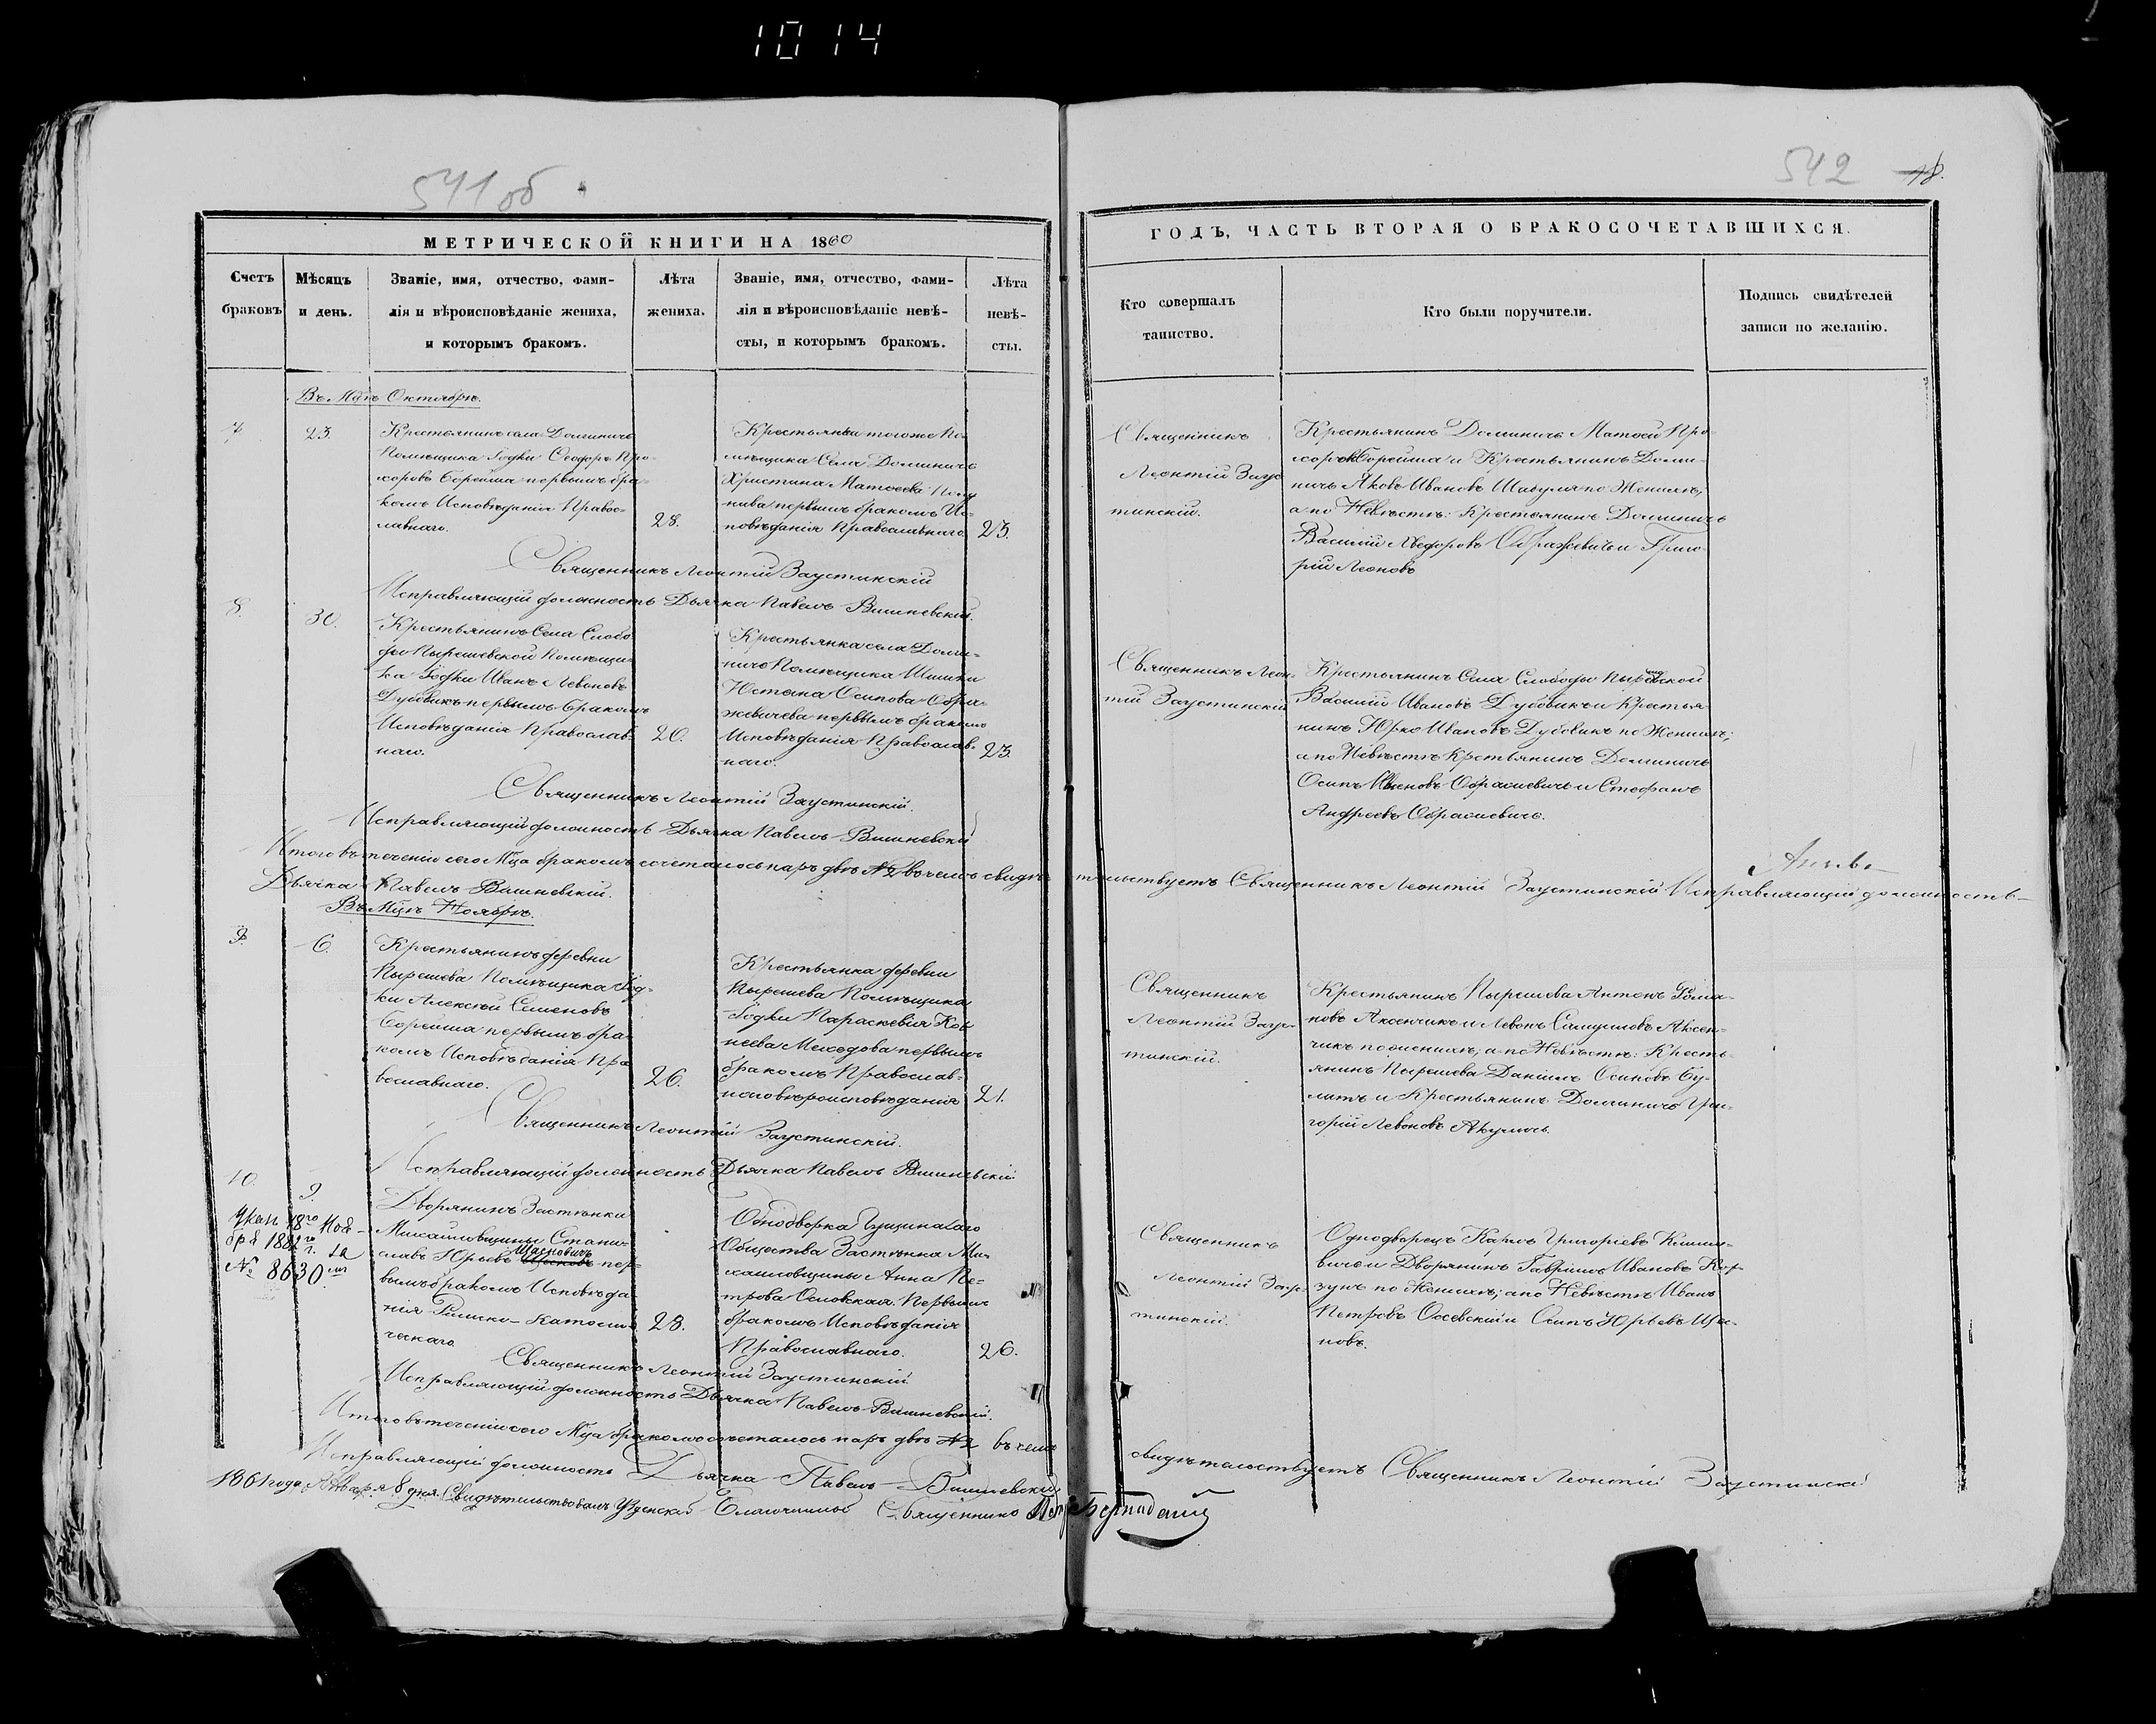 10 14
541 об
542
18.
МЕТРИЧЕСКОЙ КНИГИ НА 1860
ГОДЪ, ЧАСТЬ ВТОРАЯ О БРАКОСОЧЕТАВШИХСЯ.
Счетъ
браковъ
Мѣсяцъ
и день.
Званіе, имя, отчество, фами-
лія и вѣроисповѣданіе жениха,
и которымъ бракомъ.
Лѣта
жениха.
Званіе, имя, отчество, фами-
лія и вѣроисповѣданіе невѣ-
сты, и которымъ бракомъ.
Лѣта
невѣ-
сты.
Кто совершалъ
таинство.
Кто были поручители.
Подпись свидѣтелей
записи по желанію.
Въ Мцѣ Октябрѣ.
7.
23.
Крестьянинъ села Доминичъ
Помѣщика Годки Ѳеодоръ Про-
хоровъ Борейша первымъ бра-
комъ Исповѣданія Правос-
лавнаго.
28.
Крестьянка тогоже По-
мѣщика Села Доминичъ
Христина Матѳеева
первымъ бракомъ Ис-
повѣданія Православнаго.
23.
Священникъ
Леонтій Заус-
тинскій.
Крестьянинъ Доминичъ Матѳей Про-
хоровъ Борейша и Крестьянинъ Доми-
ничъ Яковъ Ивановъ по Женихѣ;
а по Невѣстѣ: Крестьянинъ Доминичъ
Василій Ѳедоровъ Ображевичъ и Григо-
рій Леоновъ
Священникъ Леонтій Заустинскій
Исправляющій должность Дьячка Павелъ Вишневскій.
8.
30.
Крестьянинъ Села Слобо-
ды Пырешевской Помѣщи-
ка Годки Иванъ Левоновъ
Дубовикъ первымъ бракомъ
Исповѣданія Православ-
наго.
26.
Крестьянка села Доми-
ничъ Помѣщика
Осипова Обра-
жевичева первымъ бракомъ
Исповѣданія Православ-
наго.
23.
Священникъ Леон-
тій Заустинскій
Крестьянинъ Села Слободы Пырешевской
Василій Ивановъ Дубовикъ и Крестья-
нинъ Юрко Ивановъ Дубовикъ по Женихѣ;
а по Невѣстѣ Крестьянинъ Доминичъ
Осипъ Обрасиевичъ и Стефанъ
Андреевъ Обрасиевичъ.
Священникъ Леонтій Заустинскій.
Исправляющій должность Дьячка Павелъ Вишневскій
Итого въ теченіи сего Мца бракомъ сочеталось паръ двѣ №2 въ чемъ свидѣтельствуетъ Священникъ Леонтій Заустинскій Исправляющій должность
Дьячка Павелъ Вишневскій.
Въ Мцѣ Ноябрѣ.
9.
6.
Крестьянинъ деревни
Пырешева Помѣщика Год-
ки Алексѣй Семеновъ
Борейша первымъ бра-
комъ Исповѣданія Пра-
вославнаго.
26.
Крестьянка деревни
Пырешева Помѣщика
Годки Параскевія
первымъ
бракомъ Православ-
наго вѣроисповѣданія
21.
Священникъ
Леонтій Заус-
тинскій.
Крестьянинъ Пырешева Антонъ Рома-
новъ Аксенчикъ и Левонъ Самуиловъ Аксен-
чикъ по женихѣ; а по Невѣстѣ: Кресть-
янинъ Пырешева Даніилъ Осиповъ
и Крестьянинъ Доминичъ Гри-
горій Левоновъ Акуличъ.
Священникъ Леонтій Заустинскій.
Исправляющій должность Дьячка Павелъ Вишневскій
10.
9.
Указ. 18го Ноя-
бря 1882го г. за
№ 8630
Дворянинъ Застѣнка
Михайловщины Стани-
славъ Юрьевъ пер-
вымъ бракомъ Исповѣда-
нія Римско-Католи-
ческаго.
28.
Однодворка
Общества Застѣнка Ми-
хайловщины Анна Пе-
трова Осовская Первымъ
бракомъ Исповѣданія
Православнаго.
26.
Священникъ
Леонтій Заус-
тинскій.
Однодворецъ Карлъ Григорьевъ
и Дворянинъ Гавріилъ Ивановъ Кор-
зунъ по Женихѣ; а по Невѣстѣ Иванъ
Петровъ Осовскій и Осипъ Юрьевъ
Священникъ Леонтій Заустинскій.
Исправляющій должность Дьячка Павелъ Вишневскій.
Итого въ теченіи сего Мца бракомъ сочеталось паръ двѣ №2 въ чемъ свидѣтельствуетъ Священникъ Леонтій Заустинскій
Исправляющій должность Дьячка Павелъ Вишневскій
1861 года Января 8 дня. Свидѣтельствовалъ Узденскій Благочинный Священникъ